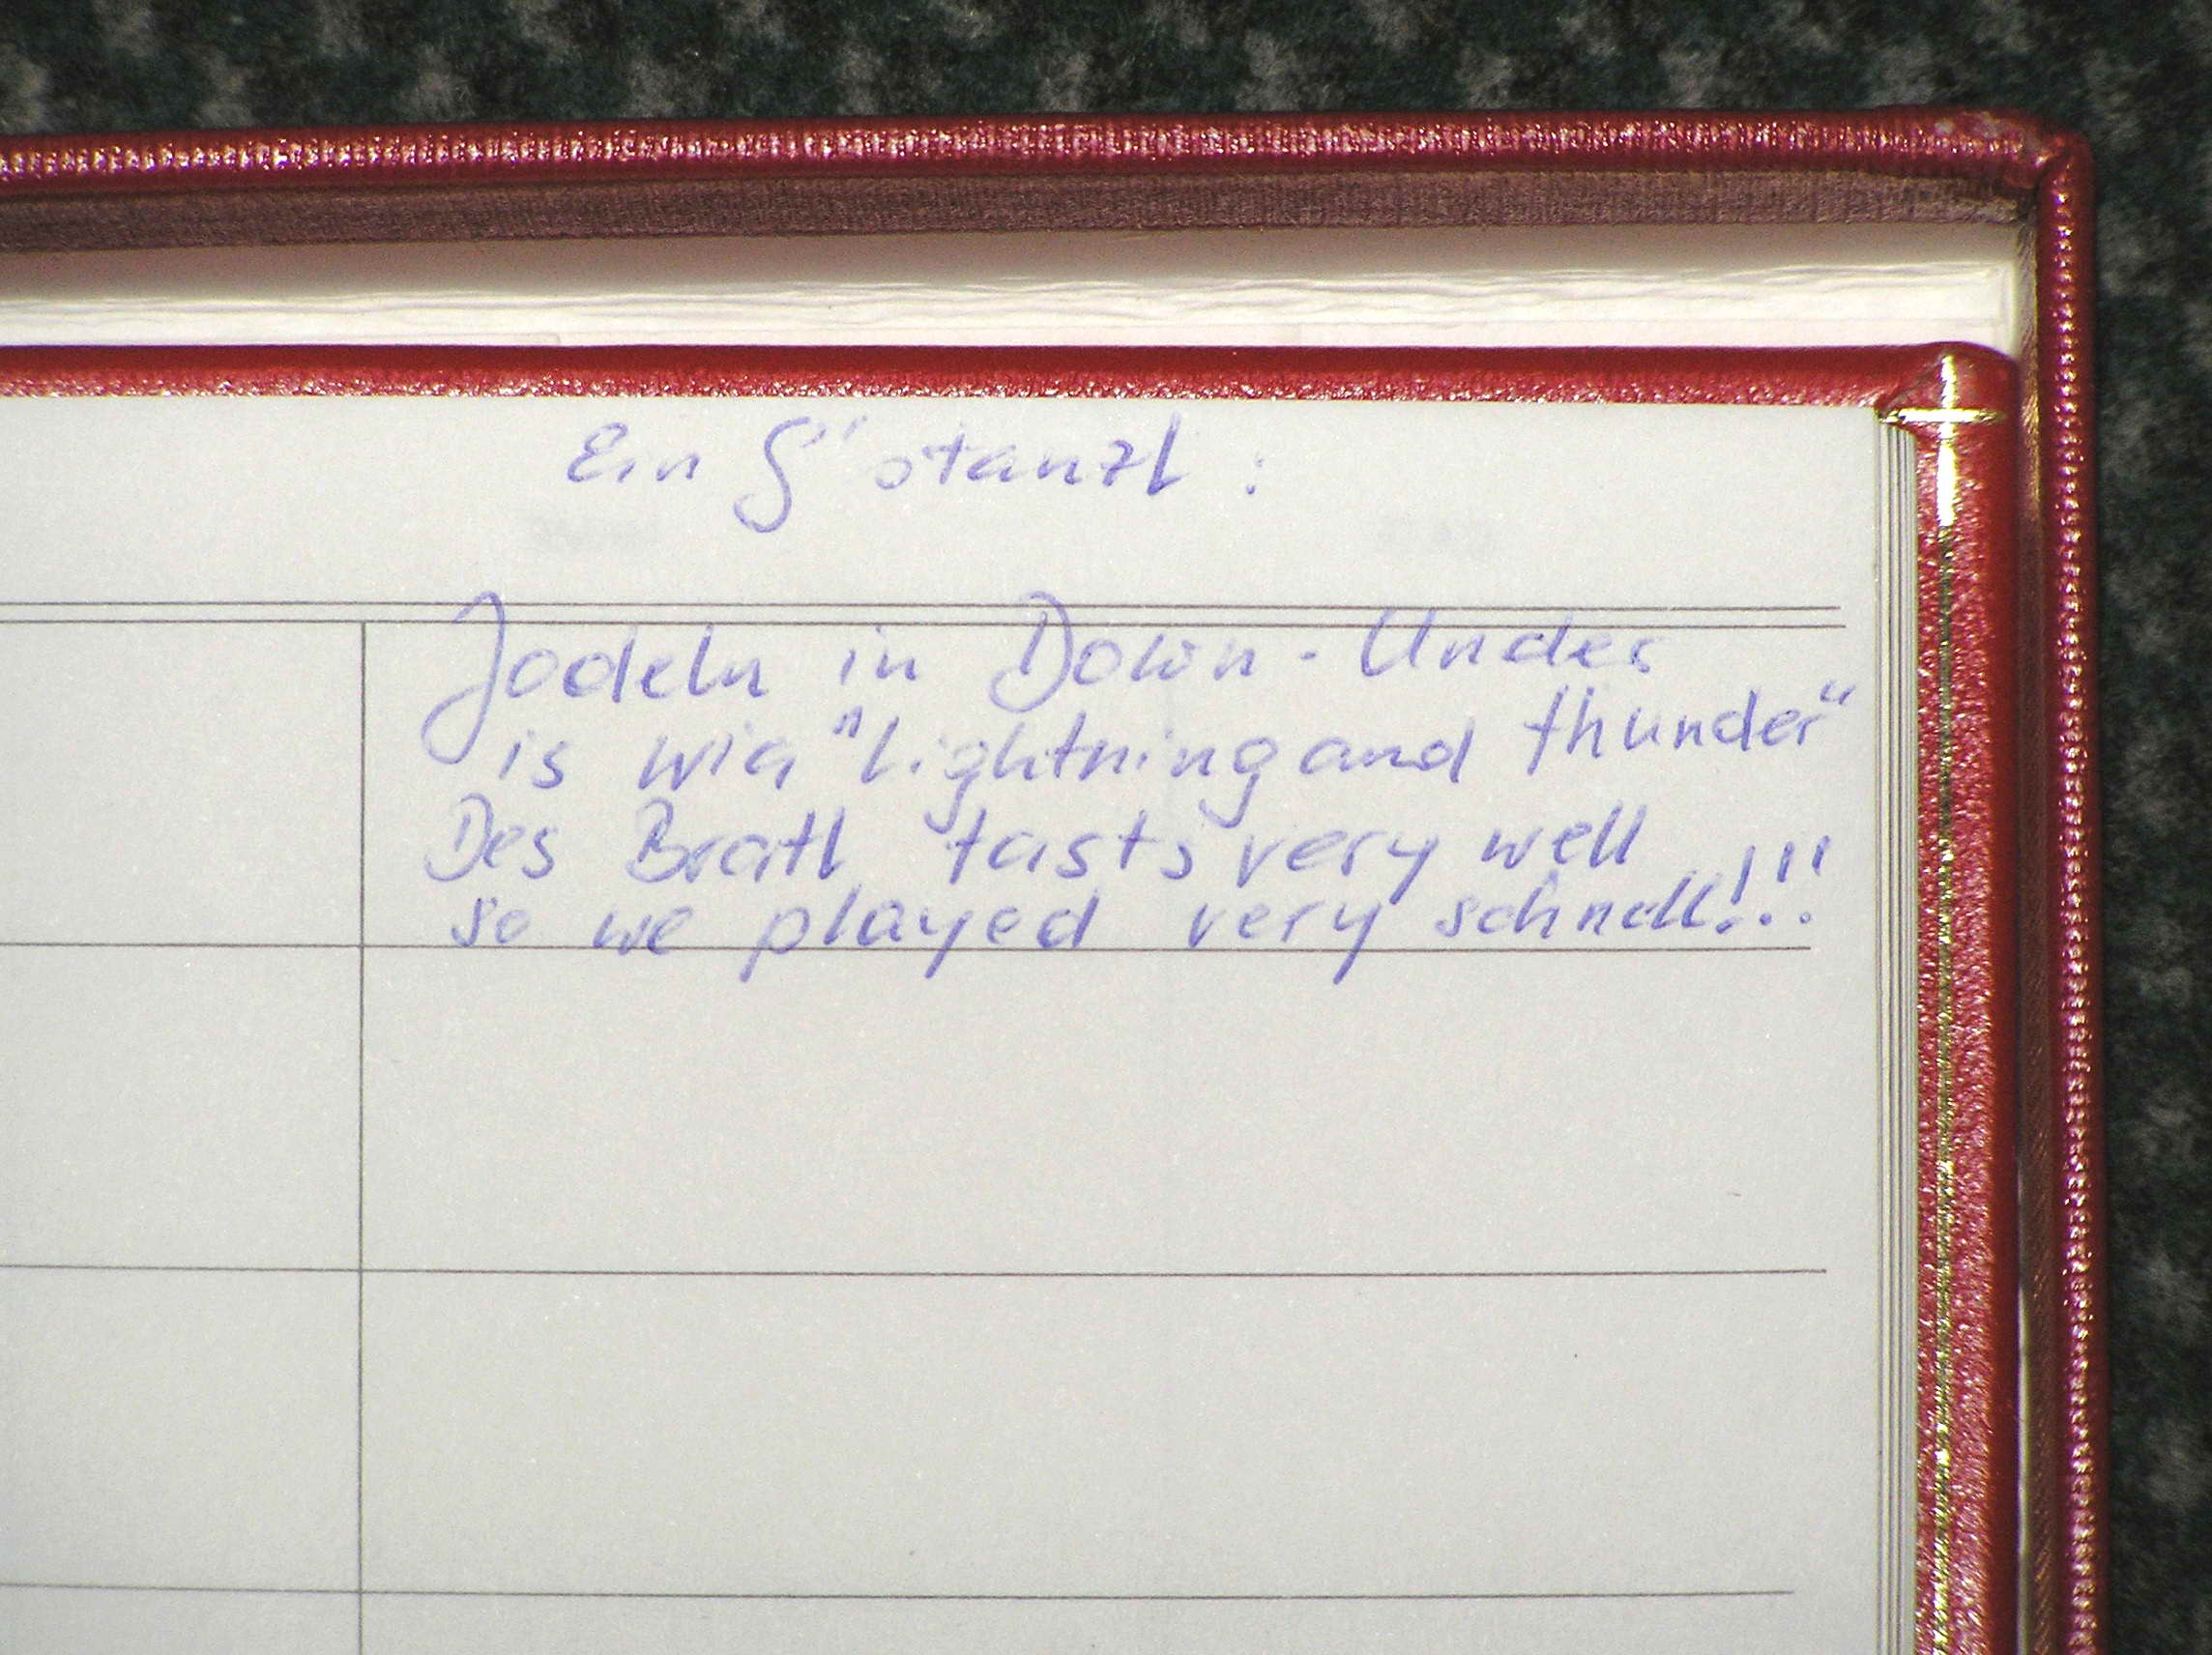 Ein G'stanzl :
Jodeln in Down-Under
is wia "Lightning and thunder"
Des Bratl tasts very well
so we played very schnell!!!